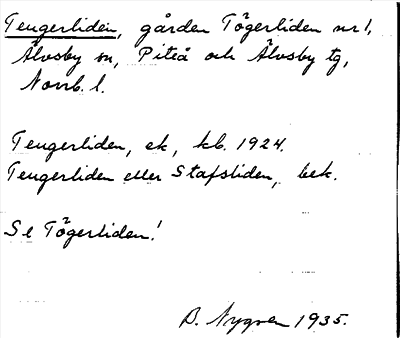 Tengerliden, gården Tögerliden nr 1,
Älvsby sn, Piteå och Älvsby tg,
Norrb. l.
Tengerliden, ek, kb. 1924.
Tengerliden eller Stafsliden, bek.
Se Tögerliden!
B. Nygren 1935.